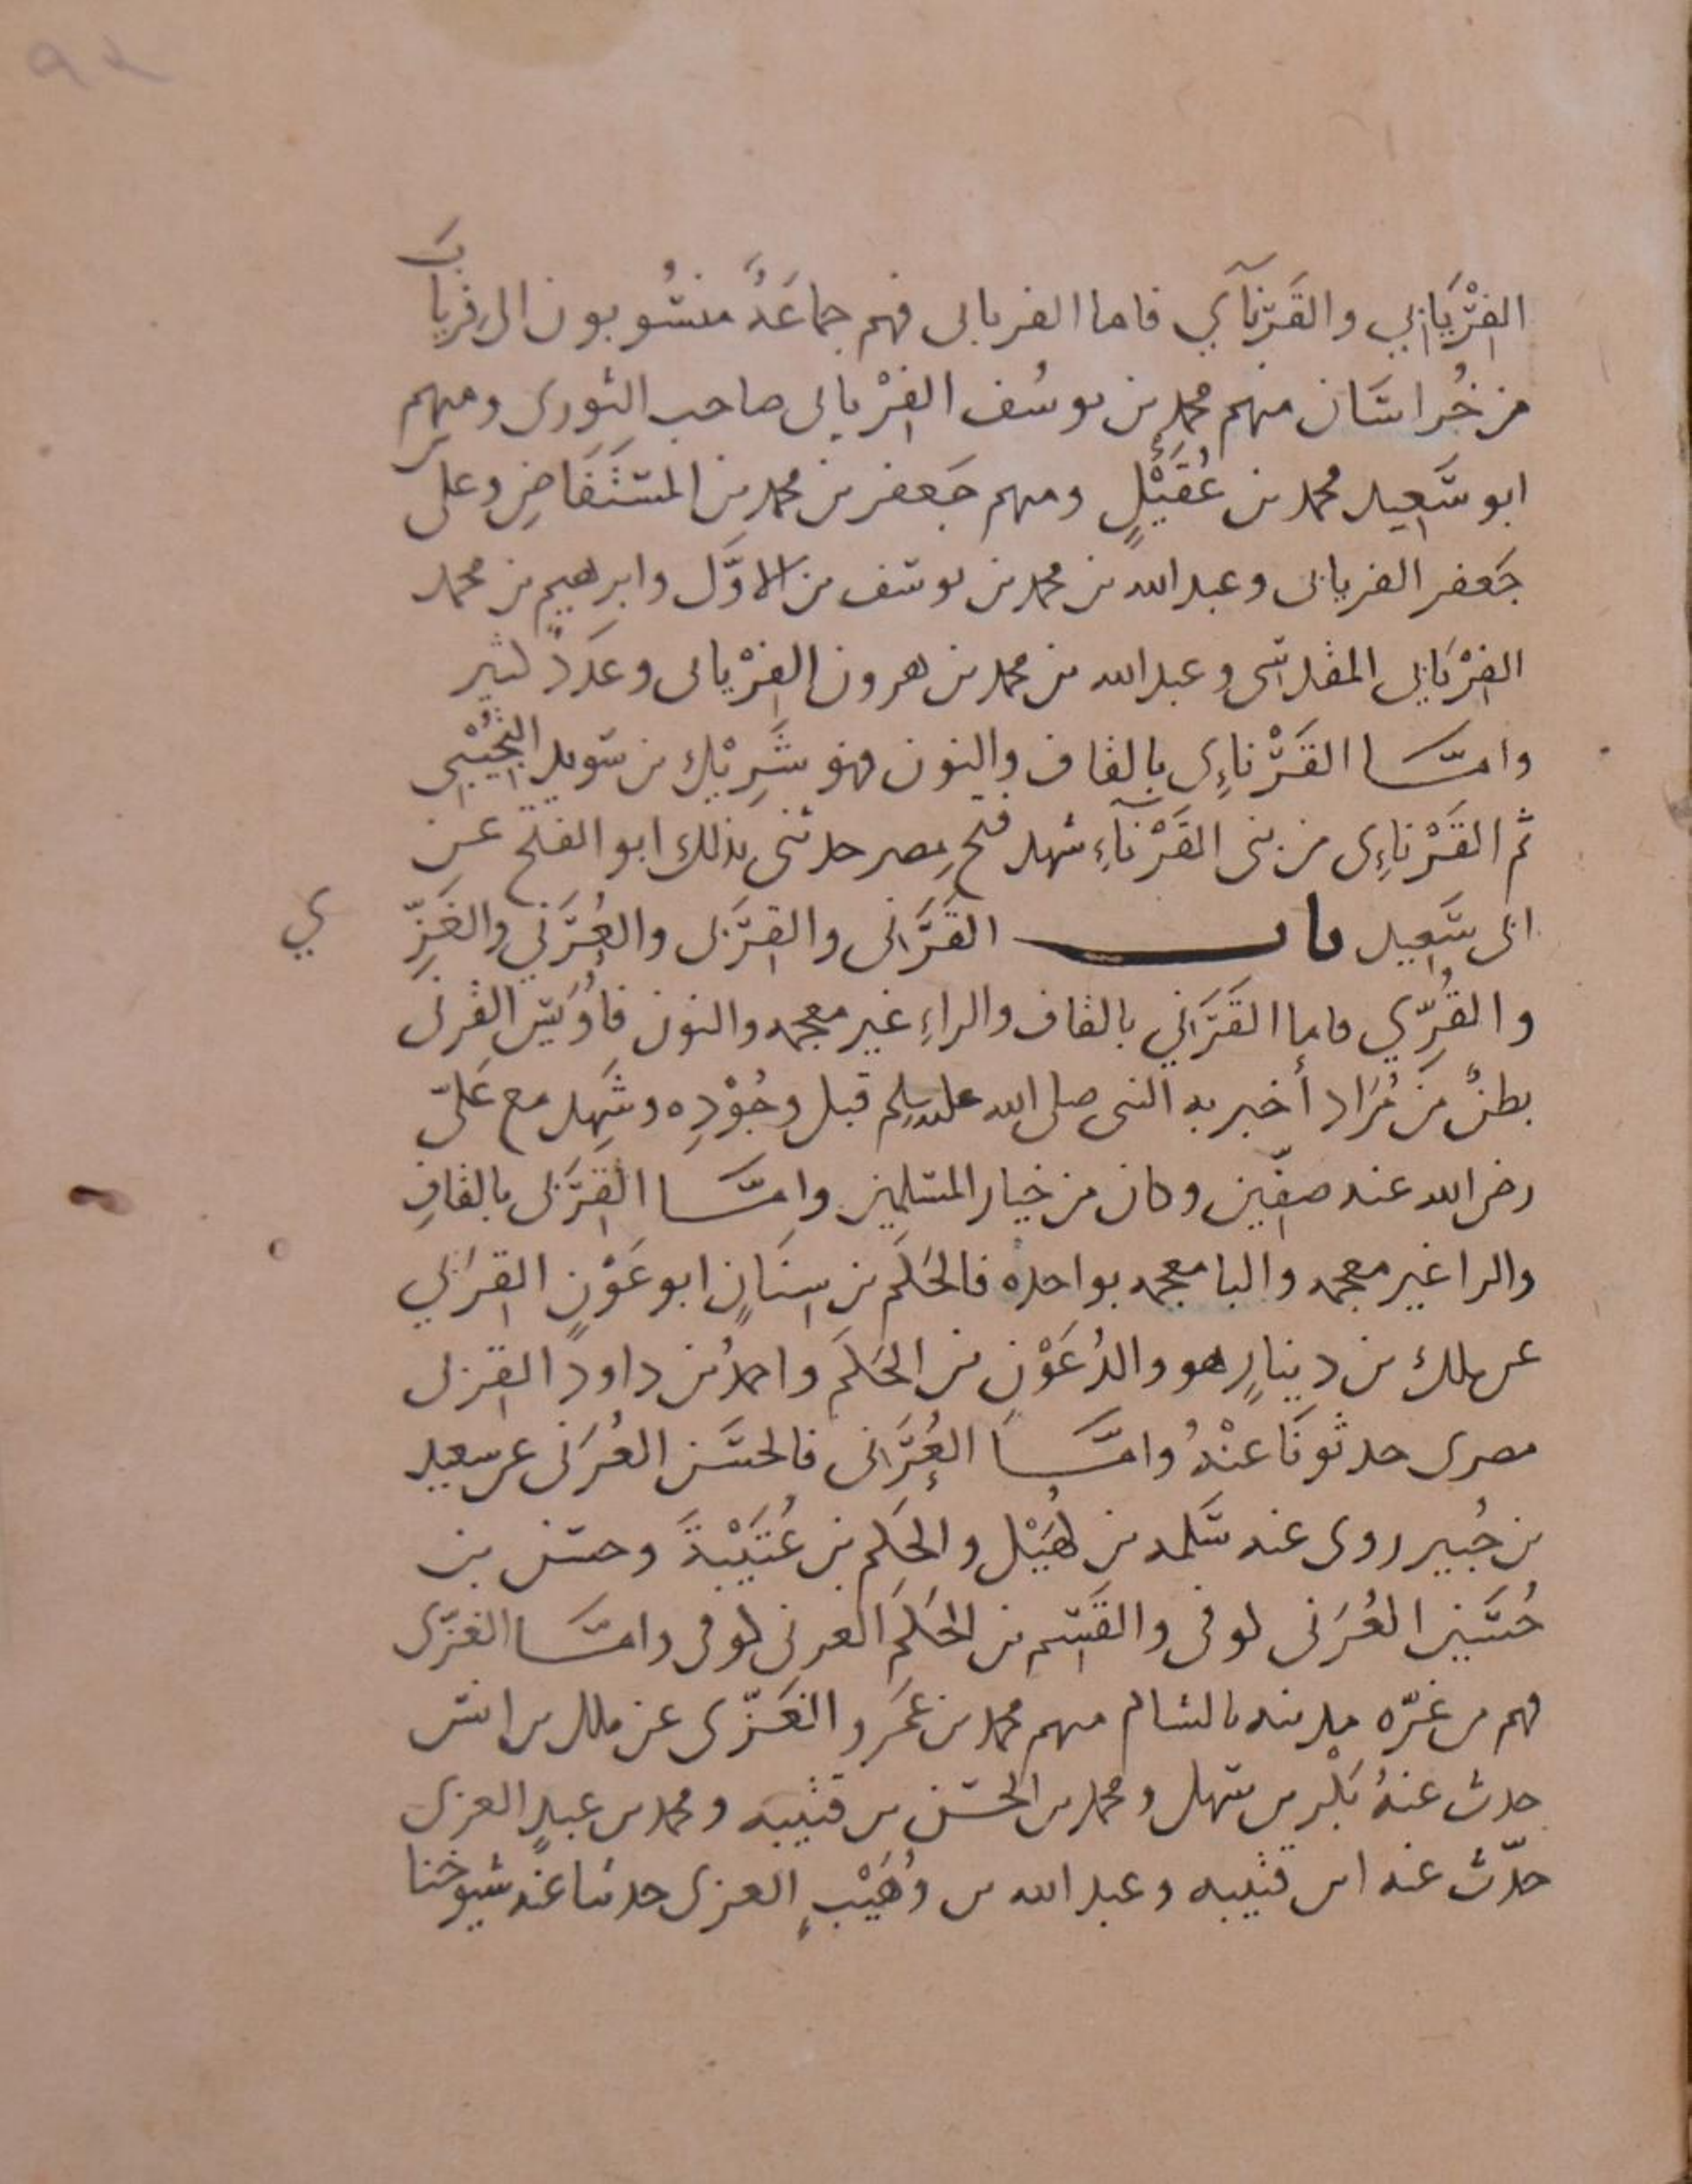 ٩٢
الفِرْيَابي والقَرْنآي فاما الفريابى فهم جماعَةٌ منسُوبون الى فِريابَ
من خُراسَان منهم محمد بن يوسُف الفِرْيابى صاحب الثورى ومنهم
ابو سَعِيد محمد بن عُقَيْلٍ ومنهم جَعفر بن محمد بن المستَفَاضِ وعلى بن
جَعفر الفريابى وعبد الله بن محمد بن يوسف بن الاوَّل وابرهيم بن محمد
الفِرْيَابي المقدسى وعبد الله بن محمد بن هرون الفِرْيابى وعَدَدٌ كثير
وامّا القَرْناءِى بالقاف والنون فهو شَرِيْك بن سويد التُجِيْبِي
ثم القَرْناءِى من بنى القَرْنآءِ شهد فتح مِصر حدثنى بذلك ابو الفتح عن
ابى سَعِيد باب القَرَني والقِرَبى والعُرَني والغَزِّي
والقُرِّي فاما القَرَني بالقاف والراءِ غير معجمه والنون فأُوَيس القرنى
بطنٌ من مُرَاد أخبر به النبى صلى الله عليه وسلم قبل وجُوْدِه وشَهِد مع عَليّ
رضى الله عنه صفّين وكان من خيار المسلمين وامّا القِرَبى بالقافِ
والرا غير معجمه والبا معجمه بواحده فالحَكَم بن سِنَانٍ ابو عَوْنٍ القرَبي
عن ملك بن دينارٍ هو والدُ عَوْن بن الحَكَم واحمدُ بن داود القربى
مصرى حدثونَا عنْهُ وامّا العُرَنى فالحسَن العُرَنى عن سعيد
بن جُبير روى عنه سَلمه بن كهَيْل والحَكَم بن عُتَيْبَةَ وحسن بن
حُسَين العُرَنى كوفى والقَسِم بن الحَكَم العرنى كوفى وامّا الغزّى
فهم من غزّه مدينه بالشام منهم محمد بن عَمرو الغَزّى عن ملك بن انس
حدث عنهُ بَكْر بن سهل ومحمد بن الحسَن بن قتيبه ومحمد بن عبيدٍ الغزى
حدّث عنه ابن قتيبه وعبد الله بن وُهَيْبٍ الغزى حدثنا عنه شيوخنا